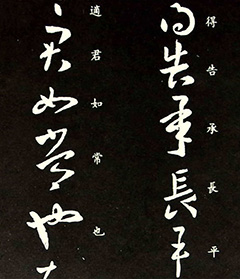 得告承長平
適君如常也